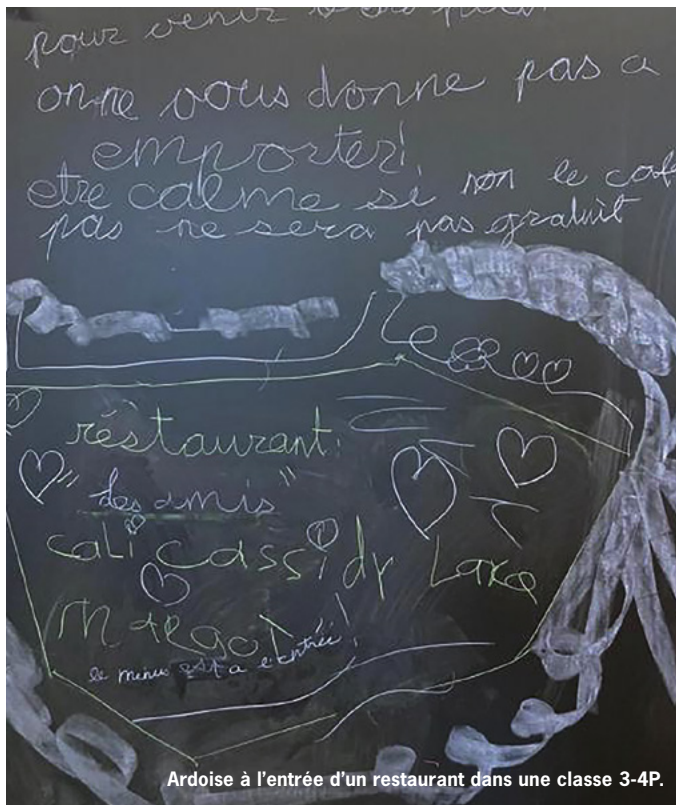 pour venir
on ne vous donne pas a
emporter!
etre calme si non le caf
pas ne sera pas gratuit
réstaurant:
"des amis"
cali cassidy Lara
Margot
le menus est a l'entrée!
Ardoise à l'entrée d'un restaurant dans une classe 3-4P.